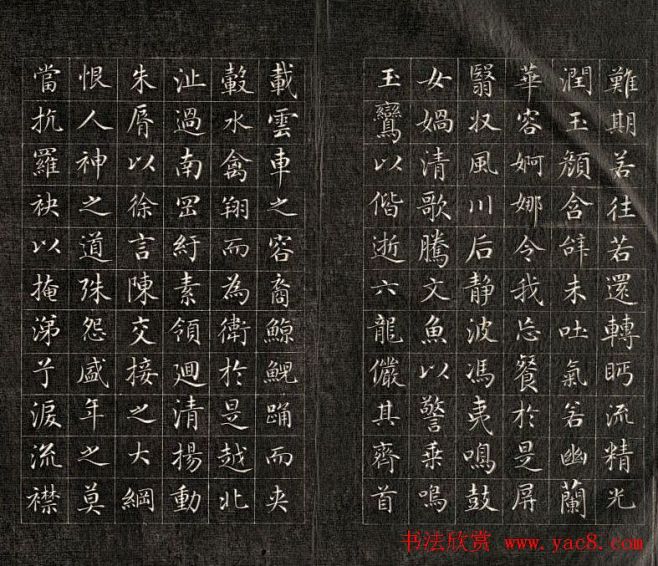 難期若往若還轉眄流精光
潤玉顔含辭未吐氣若幽蘭
華容婀娜令我忘餐於是屏
翳収風川后静波馮夷鳴鼓
女媧清歌騰文魚以警乘鳴
玉鸞以偕逝六龍儼其齊首
載雲車之容裔鯨鯢踊而夾
轂水禽翔而為衛於是越北
沚過南岡紆素領迴清揚動
朱脣以徐言陳交接之大綱
恨人神之道殊怨盛年之莫
當抗羅袂以掩涕兮淚流襟
书法欣赏 www.yac8.com